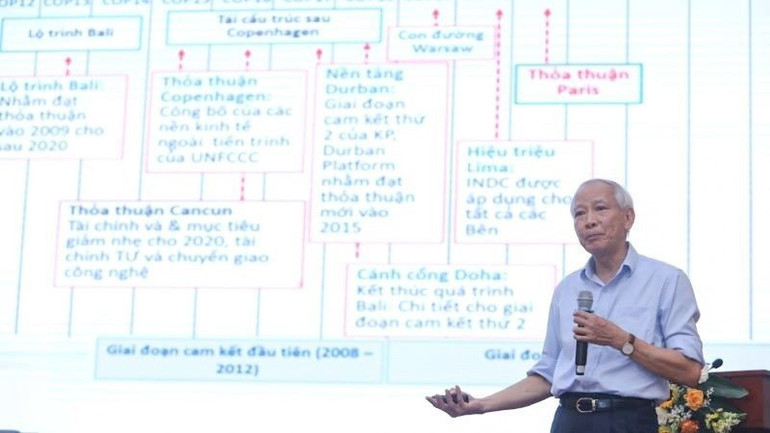 COP12 COP13
Lộ trình Bali
Tái cấu trúc sau
Copenhagen
Con đường
Warsaw
Thỏa thuận
Paris
Lộ trình Bali:
Nhằm đạt
thỏa thuận
vào 2009 cho
sau 2020
Thỏa thuận
Copenhagen:
Công bố của các
nền kinh tế
ngoài tiến trình
của UNFCCC
Nền tảng
Durban:
Giai đoạn
cam kết thứ
2 của KP,
Durban
Platform
nhằm đạt
thỏa thuận
mới vào
2015
Hiệu triệu
Lima:
INDC được
áp dụng cho
tất cả các
Bên
Thỏa thuận Cancun
Tài chính và & mục tiêu
giảm nhẹ cho 2020, tài
chính TƯ và chuyển giao
công nghệ
Cánh cổng Doha:
Kết thúc quá trình
Bali: Chi tiết cho giai
đoạn cam kết thứ 2
Giai đoạn cam kết đầu tiên (2008 –
2012)
Giai